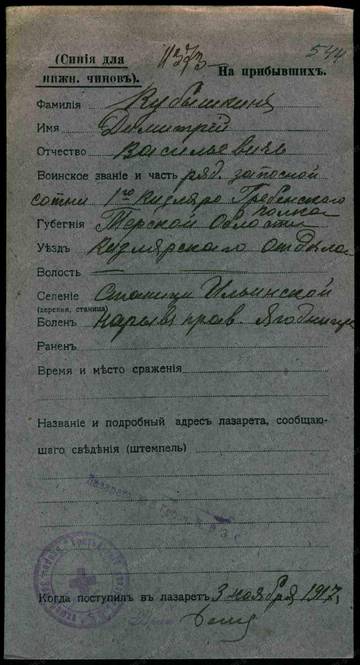 (Синія для
нижн. чиновъ).
На прибывшихъ.
544
Фамилія Кубышкинъ
Имя Димитрій
Отчество Васильевичъ
Воинское званіе и часть ряд. запасной
сотни 1го Кизляро Гребенского
полка
Губернія Терской Области
Уѣздъ Кизлярского отдѣла
Волость
Селеніе Станицы Ильинской
(деревня, станица)
Боленъ Нарывъ прав. Ягодицы
Раненъ
Время и мѣсто сраженія
Названіе и подробный адресъ лазарета, сообщаю-
щаго свѣдѣнія (штемпель)
Когда поступилъ въ лазаретъ 3 ноября 1917,